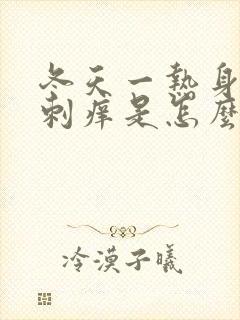 冬天一热身
刺痒是怎麼
冷漠子曦